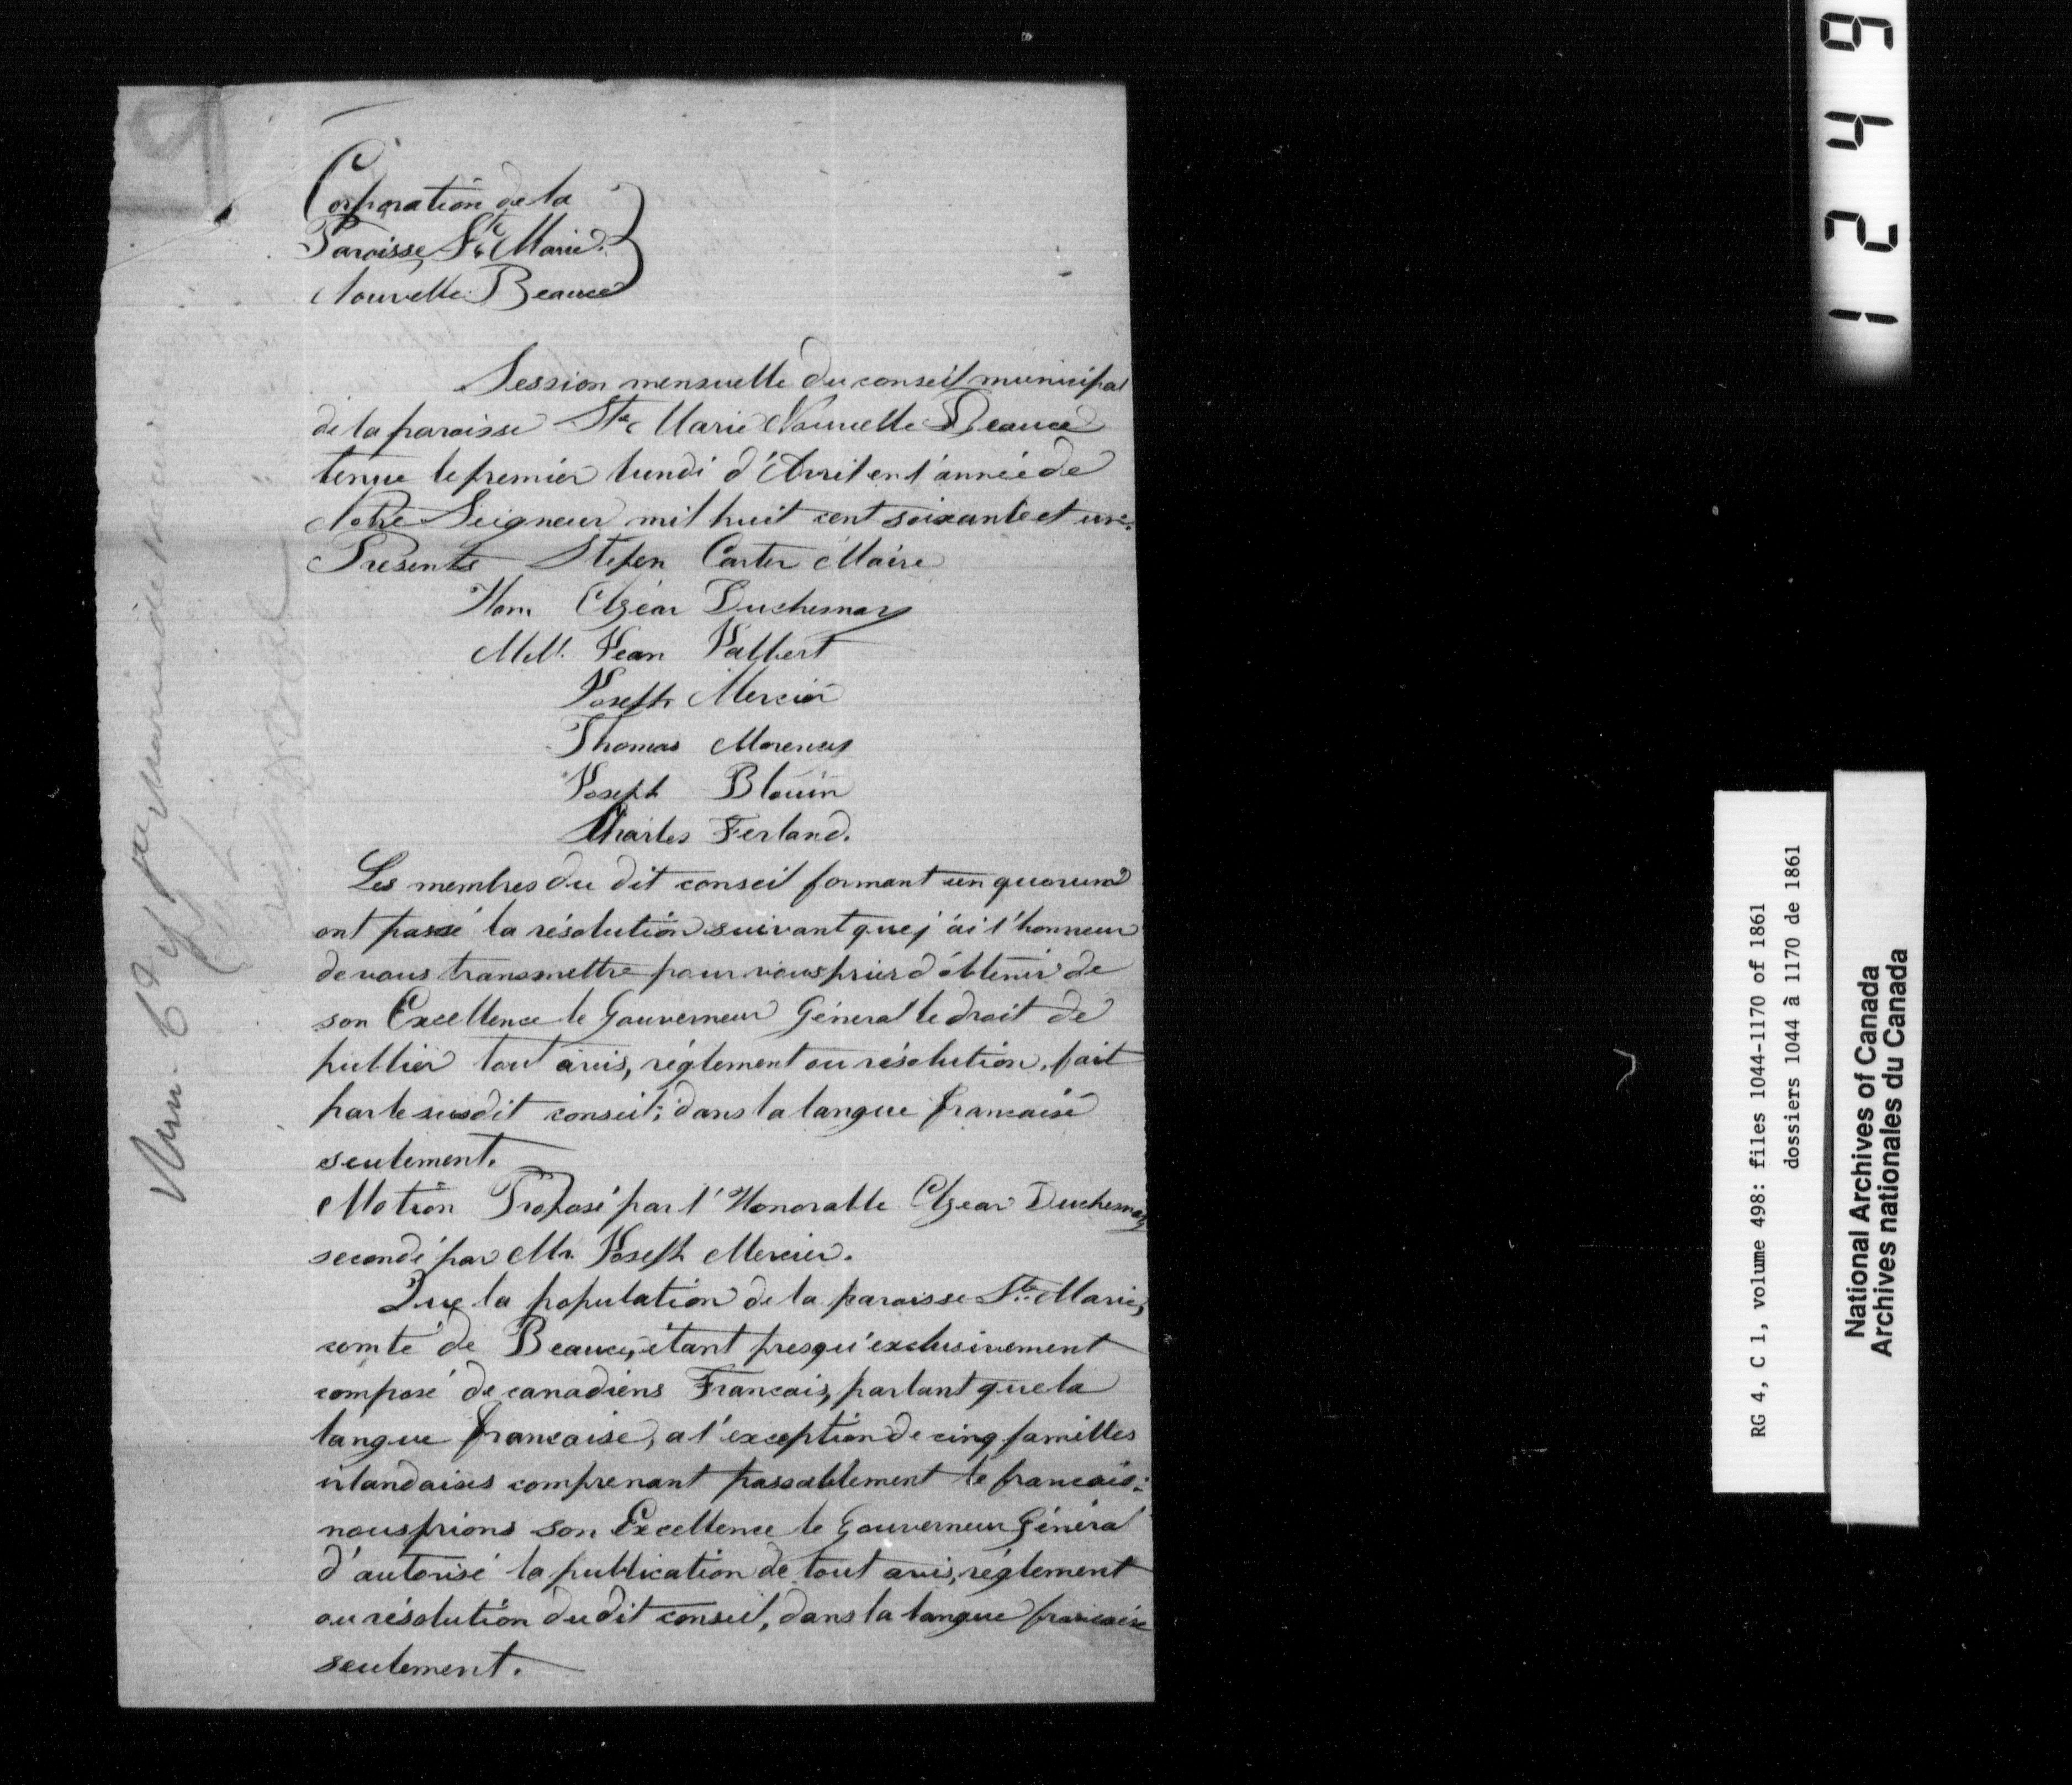 Corporation de la
Paroisse Ste Marie
Nouvelle Beauce
Session mensuelle du conseil municipal
de la paroisse Ste Marie Nouvelle Beauce
tenue le premier lundi d'Avril en l'année de
Notre Seigneur mil huit cent soixante et un.
Présents Stefen Carter Maire
Hon. Elzéar Duchesnay
MM. Jean Valbert
Joseph Mercier
Thomas Morency
Joseph Blouin
Charles Ferland.
Les membres du dit conseil formant un quorum
ont passé la résolution suivant que j'ai l'honneur
de vous transmettre pour vous prier d'obtenir de
son Excellence le Gouverneur Géneral le droit de
publier tout avis, réglement ou résolution, fait
par le susdit conseil; dans la langue francaise
seulement.
Motion Proposé par l'Honorable Elzear Duchesnay
secondé par Mr. Joseph Mercier.
Que la population de la paroisse Ste Marie,
comté de Beauce, étant presqu'exclusivement
composé de canadiens Francais, parlant que la
langue francaise, a l'exception de cinq familles
irlandaises comprenant passablement le francais:
nous prions son Excellence le Gouverneur Général
d'autorisé la publication de tout avis, réglement
ou résolution du dit conseil, dans la langue francaise
seulement.
1249
RG 4, C 1, volume 498: files 1044-1170 of 1861
dossiers 1044 à 1170 de 1861
National Archives of Canada
Archives nationales du Canada